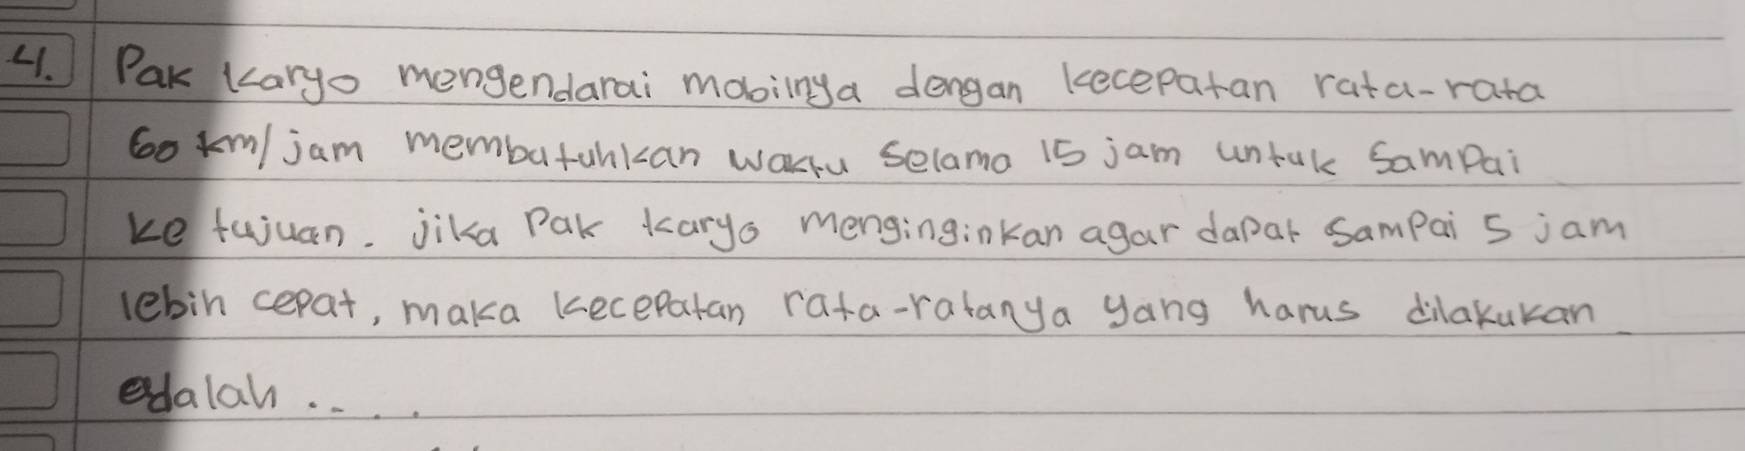 4. Pak Karyo mengendarai mobilnya dengan kecepatan rata-rata
60 km/jam membutuhkan waktu selama 15 jam untuk sampai
ke tujuan. jika Pak Karyo menginginkan agar dapat sampai 5 jam
lebih cepat, maka kecepatan rata-ratanya yang harus dilakukan
adalah .....